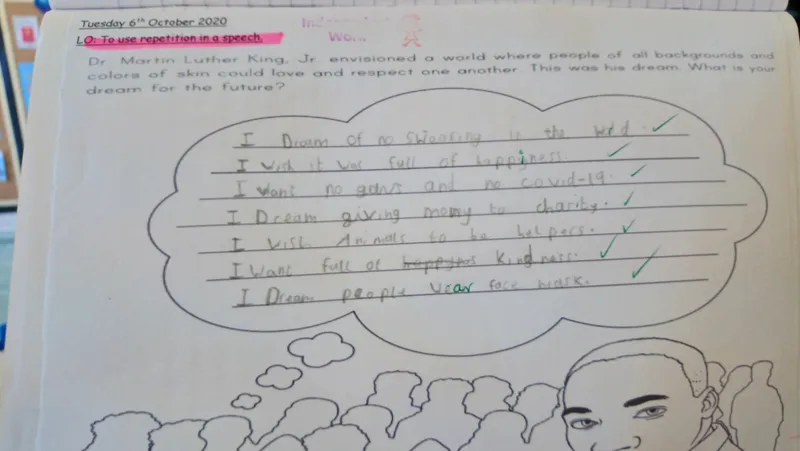 Tuesday 6th October 2020
LO: To use repetition in a speech.
Independent
Work
Dr. Martin Luther King, Jr. envisioned a world where people of all backgrounds and
colors of skin could love and respect one another. This was his dream. What is your
dream for the future?
I Dream of no swearing in the
I wish it was full of happyness.
I want no guns and no covid-19.
I Dream giving money to charity.
I wish Animals to be helpers.
I want full of happynes kindness.
I Dream people wear face mask.